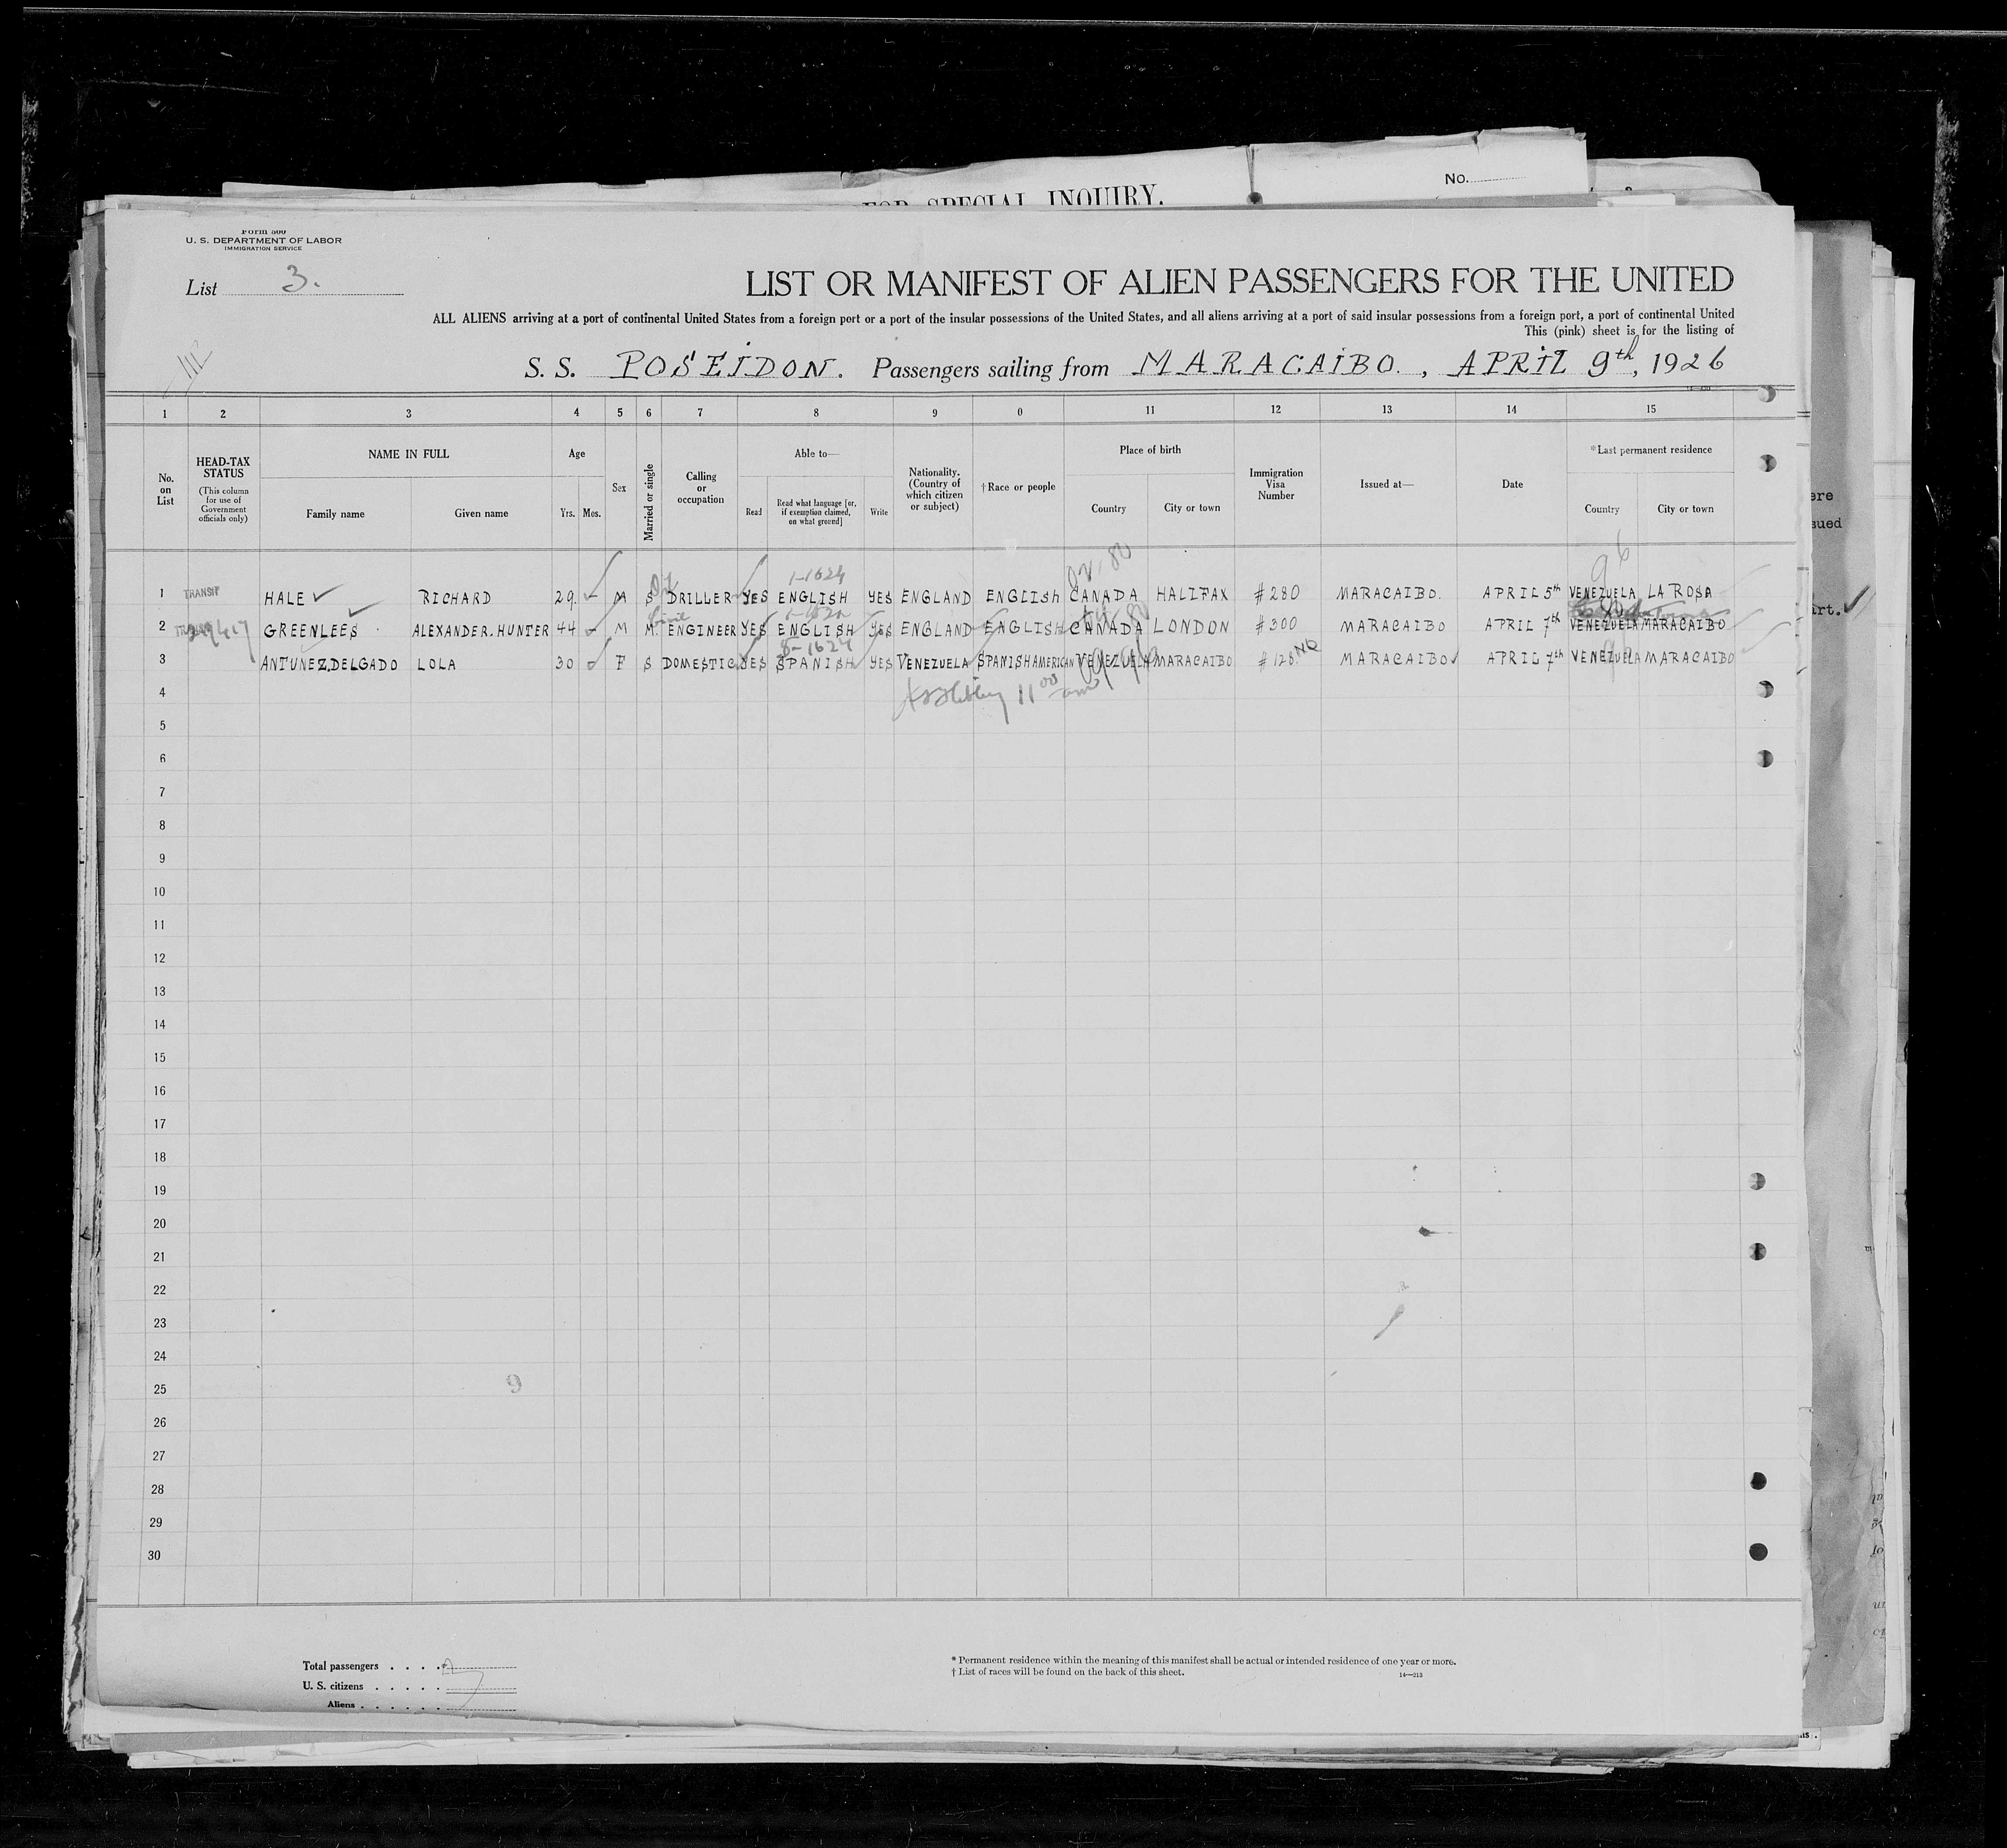 FOR SPECIAL INQUIRY.
No.
Form 500
U. S. DEPARTMENT OF LABOR
IMMIGRATION SERVICE
List 3.
LIST OR MANIFEST OF ALIEN PASSENGERS FOR THE UNITED
ALL ALIENS arriving at a port of continental United States from a foreign port or a port of the insular possessions of the United States, and all aliens arriving at a port of said insular possessions from a foreign port, a port of continental United
This (pink) sheet is for the listing of
S. S. POSEIDON. Passengers sailing from MARACAIBO., APRIL 9th, 1926
1 2 3 4 5 6 7 8 9 0 11 12 13 14 15
No. on List
HEAD-TAX STATUS (This column for use of Government officials only)
NAME IN FULL Family name Given name
Age Yrs. Mos.
Sex
Married or single
Calling or occupation
Able to— Read Read what language [or, if exemption claimed, on what ground] Write
Nationality. (Country of which citizen or subject)
†Race or people
Place of birth Country City or town
Immigration Visa Number
Issued at—
Date
*Last permanent residence Country City or town
ere
sued
1-1624
1 TRANSIT HALE RICHARD 29. - M S DRILLER YES ENGLISH YES ENGLAND ENGLISH CANADA HALIFAX #280 MARACAIBO. APRIL 5th VENEZUELA LA ROSA
art.
civil
2 GREENLEES ALEXANDER.HUNTER 44 - M M. ENGINEER YES ENGLISH YES ENGLAND ENGLISH CANADA LONDON #300 MARACAIBO APRIL 7th VENEZUELA MARACAIBO
8-1624
3 ANTUNEZ,DELGADO LOLA 30 - F S DOMESTIC YES SPANISH YES VENEZUELA SPANISHAMERICAN VENEZUELA MARACAIBO #128 NQ MARACAIBO APRIL 7th VENEZUELA MARACAIBO
4
11 00 am
5
6
7
8
9
10
11
12
13
14
15
16
17
18
19
20
21
22
23
24
25
9
26
27
28
29
30
Total passengers
U. S. citizens
Aliens
* Permanent residence within the meaning of this manifest shall be actual or intended residence of one year or more.
† List of races will be found on the back of this sheet.
14—213